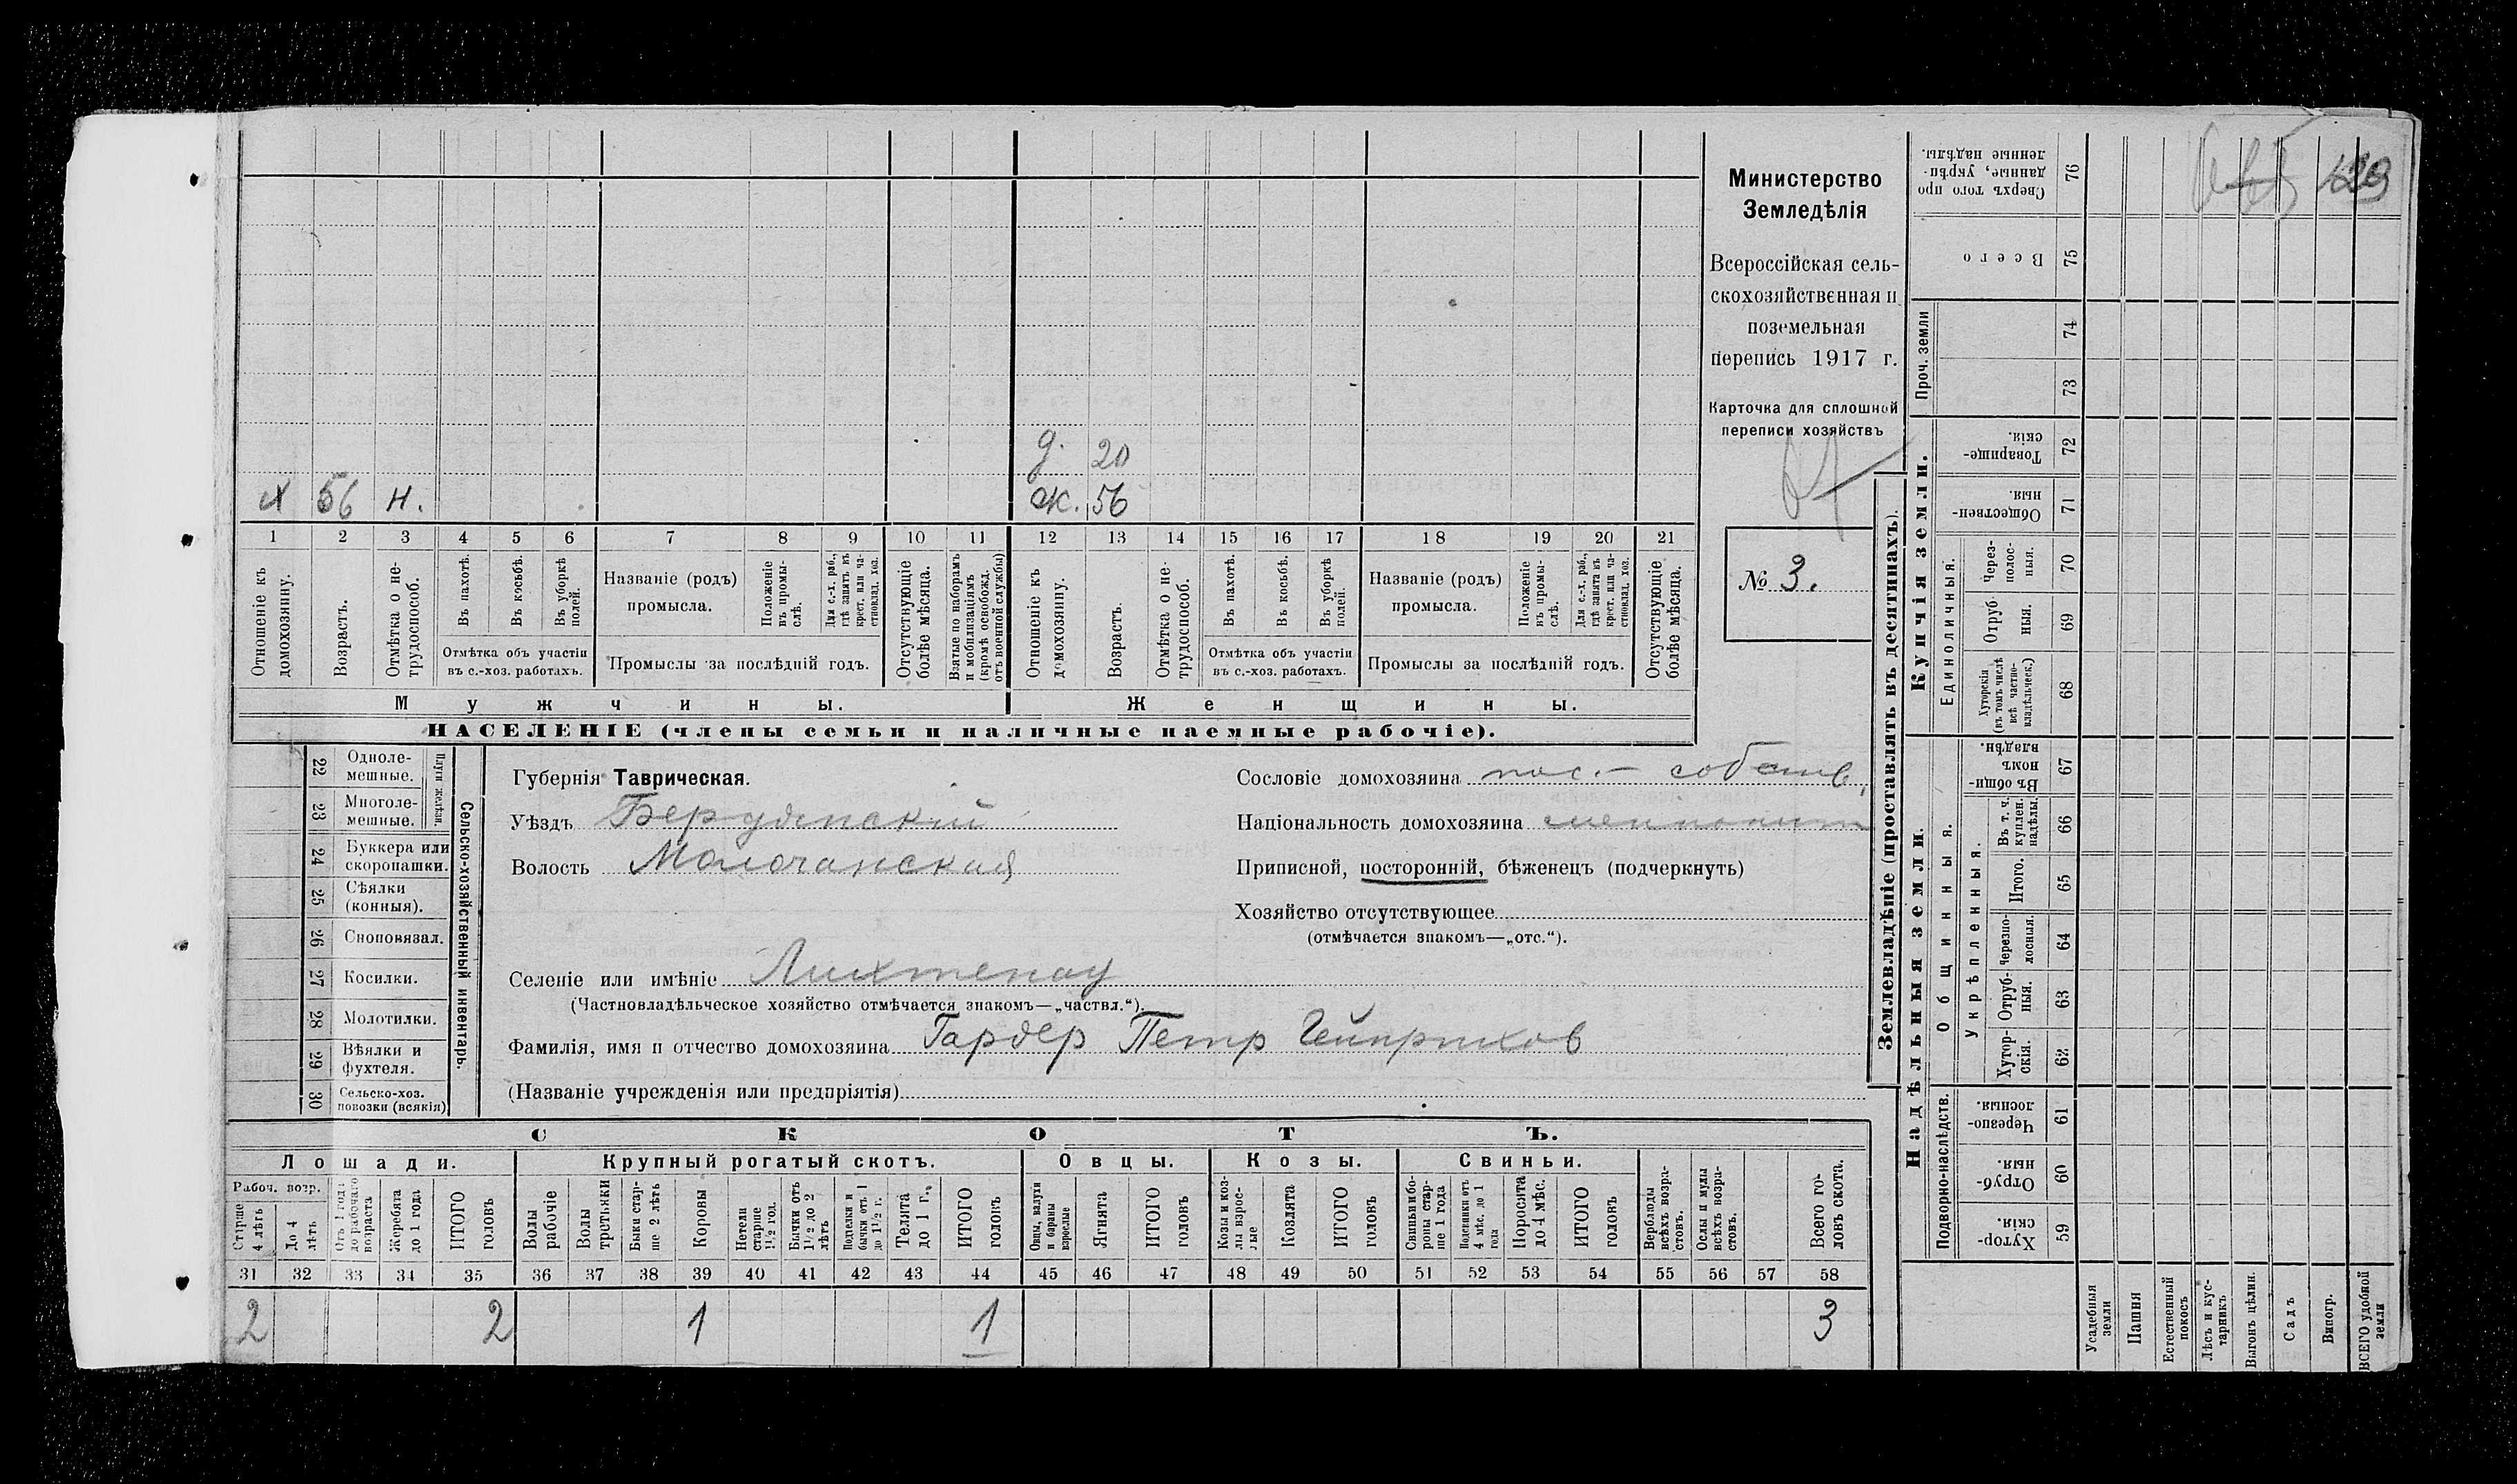 д. 20
х 56 н. ж. 56
1 2 3 4 5 6 7 8 9 10 11 12 13 14 15 16 17 18 19 20 21
Отношеніе къ домохозяину.
Возрастъ.
Отмѣтка о не-трудоспособ.
Въ пахотѣ.
Въ косьбѣ.
Въ уборкѣ полей.
Отмѣтка объ участіи
въ с.-хоз. работахъ.
Названіе (родъ)
промысла.
Положеніе въ промы-слѣ.
Для с.-х. раб., гдѣ занятъ въ крест. или ча-стновлад. хоз.
Промыслы за послѣдній годъ.
Отсутствующіе болѣе мѣсяца.
Взятые по наборамъ и мобилизаціямъ (кромѣ освобожд. отъ военной службы)
Отношеніе къ домохозяину.
Возрастъ.
Отмѣтка о не-трудоспособ.
Въ пахотѣ.
Въ косьбѣ.
Въ уборкѣ полей.
Отмѣтка объ участіи
въ с.-хоз. работахъ.
Названіе (родъ)
промысла.
Положеніе въ промы-слѣ.
Для с.-х. раб., гдѣ занята въ крест. или ча-стновлад. хоз.
Промыслы за послѣдній годъ.
Отсутствующіе болѣе мѣсяца.
Мужчины. Женщины.
НАСЕЛЕНІЕ (члены семьи и наличные наемные рабочіе).
Министерство
Земледѣлія
Всероссійская сель-
скохозяйственная и
поземельная
перепись 1917 г.
Карточка для сплошной
переписи хозяйствъ
№ 3.
22 Одноле-мешные.
23 Многоле-мешные.
Плуги желѣзн.
24 Буккера или скоропашки.
25 Сѣялки (конныя).
26 Сноповязал.
27 Косилки.
28 Молотилки.
29 Вѣялки и фухтеля.
30 Сельско-хоз. повозки (всякія)
Сельско-хозяйственный инвентарь.
Губернія Таврическая.
Уѣздъ Бердянскій
Волость Молочанская
Сословіе домохозяина пос.- собств.
Національность домохозяина меннонит
Приписной, посторонній, бѣженецъ (подчеркнуть)
Хозяйство отсутствующее
(отмѣчается знакомъ—„отс.“).
Селеніе или имѣніе Лихтенау
(Частновладѣльческое хозяйство отмѣчается знакомъ—„частвл.“).
Фамилія, имя и отчество домохозяина Гардер Петр Гейнрихов
(Названіе учрежденія или предпріятія)
СКОТЪ.
Лошади. Крупный рогатый скотъ. Овцы. Козы. Свиньи.
Рабоч. возр.
Старше 4 лѣтъ
До 4 лѣтъ
Отъ 1 года до рабочаго возраста
Жеребята до 1 года
ИТОГО головъ
Волы рабочіе
Волы третьяки
Быки стар-ше 2 лѣтъ
Коровы
Нетели старше 1½ год.
Бычки отъ 1½ до 2 лѣтъ
Подтелки и бычки отъ 1 до 1½ г.
Телята до 1 г.
ИТОГО головъ
Овцы, валухи и бараны взрослые
Ягнята
ИТОГО головъ
Козы и коз-лы взрос-лые
Козлята
ИТОГО головъ
Свиньи и бо-ровы стар-ше 1 года
Подсвинки отъ 4 мѣс. до 1 года
Поросята до 4 мѣс.
ИТОГО головъ
Верблюды всѣхъ возра-стовъ.
Ослы и мулы всѣхъ возра-стовъ.
Всего го-ловъ скота.
31 32 33 34 35 36 37 38 39 40 41 42 43 44 45 46 47 48 49 50 51 52 53 54 55 56 57 58
2 2 1 1 3
Землевладѣніе (проставлять въ десятинахъ).
Купчія земли.
Надѣльныя земли.
Сверхъ того про-данные, укрѣп-ленные надѣлы. 76
Всего 75
Проч. земли 74
73
Товарище-скія. 72
Обществен-ныя. 71
Единоличныя.
Через-полос-ныя. 70
Отруб-ныя. 69
Хуторскія (въ томъ числѣ всѣ частно-владѣльческ.) 68
Общинныя.
Въ общин-номъ владѣн. 67
Укрѣпленныя.
Въ т. ч. куплен. надѣлы. 66
Итого. 65
Черезпо-лосныя. 64
Отруб-ныя. 63
Хутор-скія. 62
Подворно-наслѣдств.
Черезпо-лосныя. 61
Отруб-ныя. 60
Хутор-скія. 59
Усадебныя земли
Пашня
Естественный покосъ
Лѣсъ и кус-тарникъ
Выгонъ цѣлин.
Садъ
Виногр.
ВСЕГО удобной земли